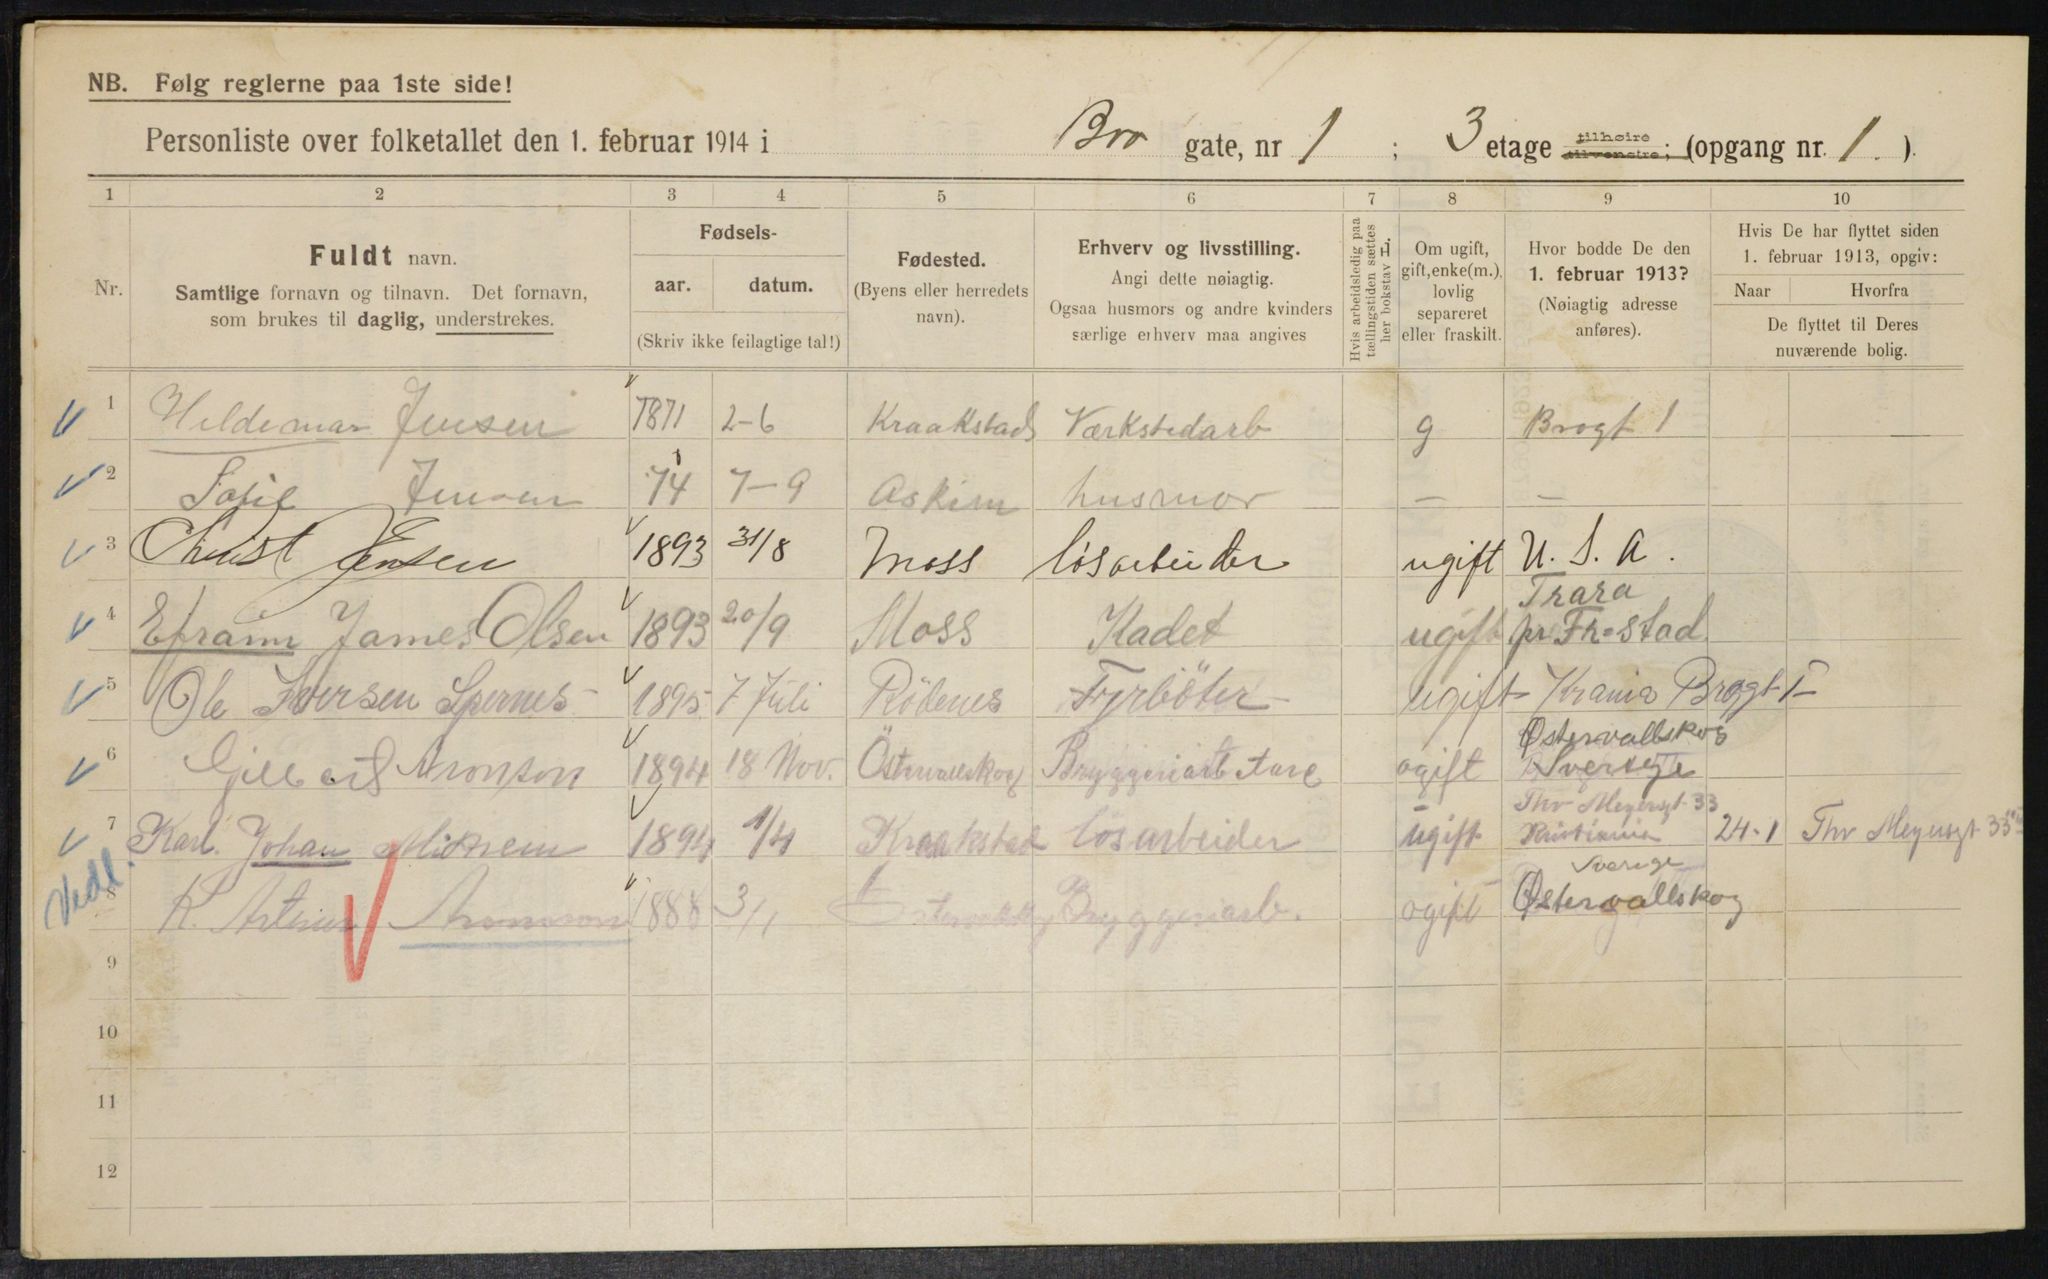 NB. Følg reglerne paa 1ste side!
Personliste over folketallet den 1. februar 1914 i Bro gate, nr 1 ; 3 etage tilhøire tilvenstre; (opgang nr. 1. ).
1 2 3 4 5 6 7 8 9 10
Nr.
Fuldt navn.
Samtlige fornavn og tilnavn. Det fornavn,
som brukes til daglig, understrekes.
Fødsels-
aar. datum.
(Skriv ikke feilagtige tal!)
Fødested.
(Byens eller herredets
navn).
Erhverv og livsstilling.
Angi dette nøiagtig.
Ogsaa husmors og andre kvinders
særlige erhverv maa angives
Hvis arbeidsledig paa
tællingstiden sættes
her bokstav L.
Om ugift,
gift, enke(m.),
lovlig
separeret
eller fraskilt.
Hvor bodde De den
1. februar 1913?
(Nøiagtig adresse
anføres).
Hvis De har flyttet siden
1. februar 1913, opgiv:
Naar Hvorfra
De flyttet til Deres
nuværende bolig.
1 Hildemar Jensen 1871 2-6 Kraakstad Værkstedarb g Brogt 1
2 Sofie Jensen 74 7-9 Askim husmor — —
3 Christ Jensen 1893 31/8 Moss løsarbeider ugift U. S. A.
4 Efraim James Olsen 1893 20/9 Moss Kadet ugift Trara
pr Fr-stad
5 Ole Iversen Spernes 1895 7 Juli Rödenes Fyrböter ugift Krania Brogt 1
6 Aronson 1894 18 Nov. Östervallskog Bryggeriarbetare ogift Østervallskog
Sverige
7 Karl Johan 1894 1/4 Kraakstad løsarbeider ugift Thv Meyersgt 33
Kristiania 24-1 Thv Meyersgt 33
Vedl.
8 K. Aronsson 1888 3/1 Östervallskog Bryggeriarb. ogift Sverige
Østervallskog
9
10
11
12